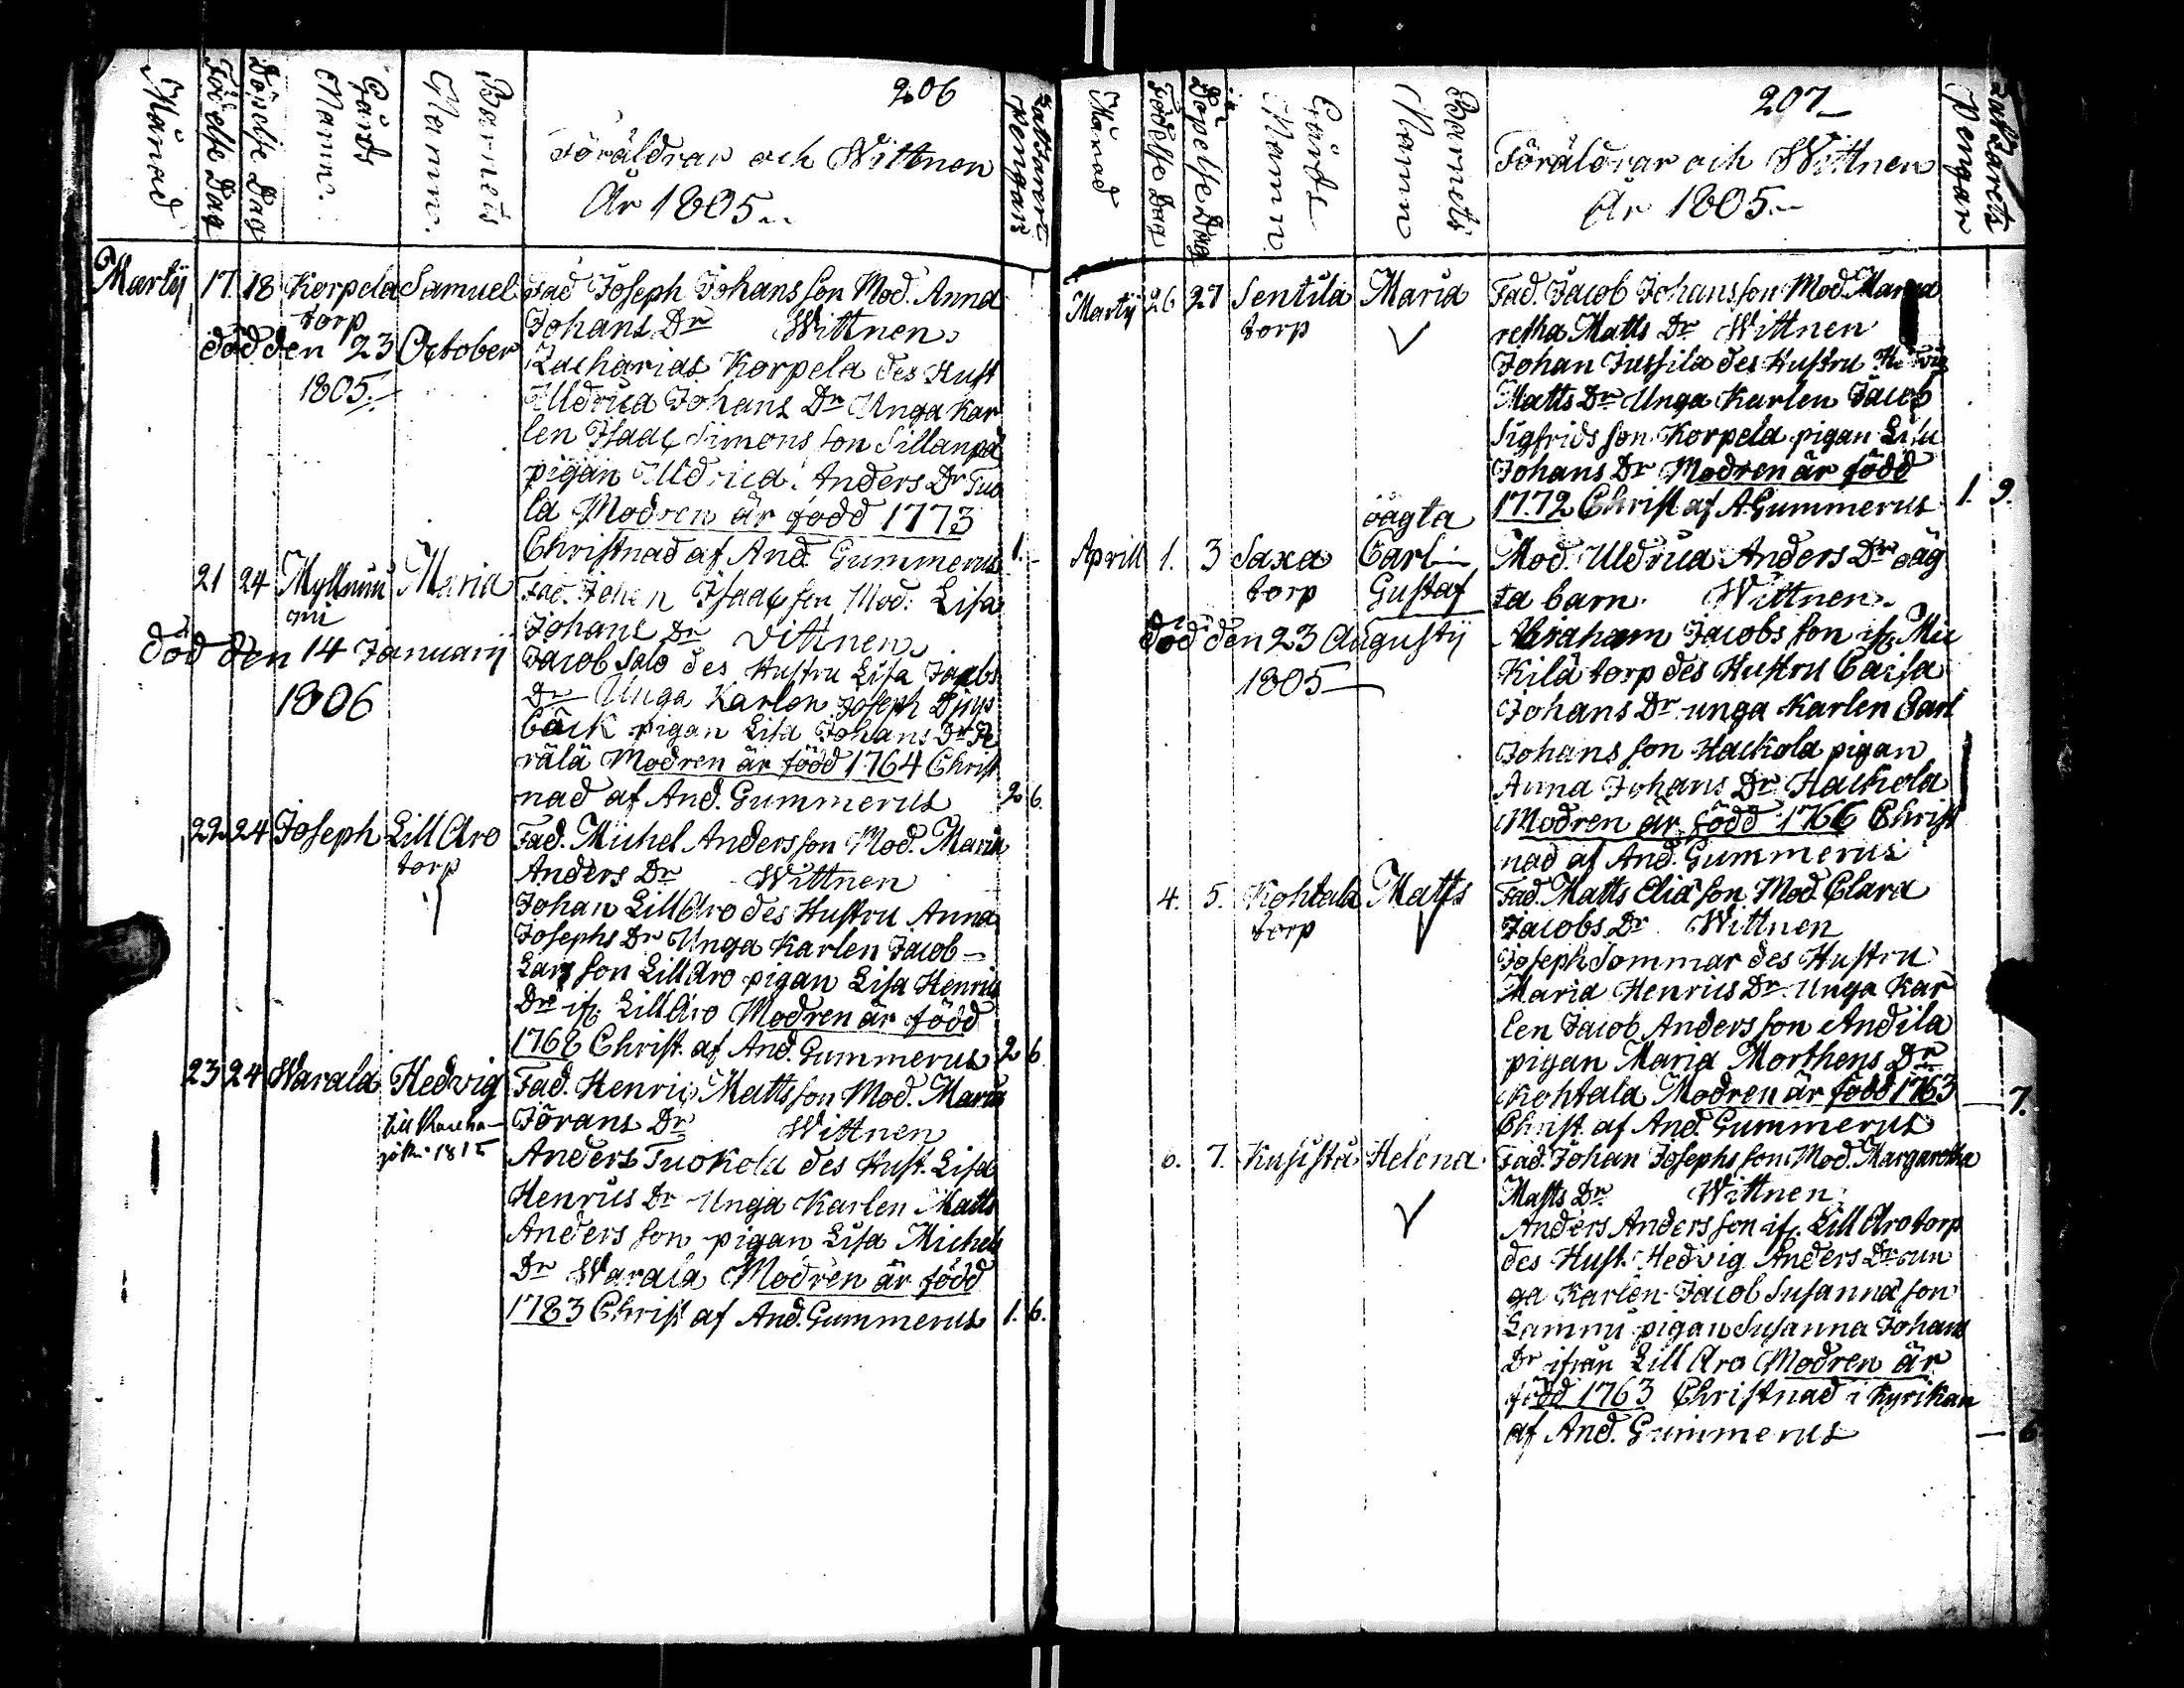 206
Månad
Födelse Dag
Döpelse Dag
Gårds Namn.
Barnets Namn.
Föräldrar och Wittnen
År 1805..
Pengar
Martij 17 18 Korpela torp Samuel
död den 23 October
1805./.
Fad Joseph Johansson Mod. Anna
Johans Dr Wittnen
Zacharias Korpela des Hust
Uldrica Johans Dr Unga Kar
len Isaac Simons son Sillanpä
pigan Uldrica Anders Dr Tuo
la Modren är född 1773
Christnad af And. Gummerus 1. -
21 24 Maria
död den 14 Januarij
1806
Fad. Johan Isaac son Mod. Lisa
Johans Dr Vittnen
Jacob Salo des Hustru Lisa Jacobs
Dr Unga Karlen Joseph
bäck pigan Lisa Johans Dr Pe
rälä Modren är född 1764 Christ
nad af And. Gummerus 2 6.
22 24 Joseph Lill Aro
torp
Fad. Michel Andersson Mod. Maria
Anders Dr Wittnen
Johan Lill Aro des Hustru Anna
Josephs Dr Unga Karlen Jacob
Lars son Lill Aro pigan Lisa Henrics
Dr if. Lill Aro Modren är född
1768 Christ. af And. Gummerus 2 6
23 24 Warala Hedvig
till
1815
Fad. Henric Matts son Mod. Maria
Jörans Dr Wittnen
Anders Tuokola des Hust. Lisa
Henrics Dr Unga Karlen Matts
Anders son pigan Lisa Michels
Dr Warala Modren är född
1783 Christ af And. Gummerus 1. 6.
207
Månad
Födelse Dag
Döpelse Dag
Gårds Namn
Barnets Namn
Föräldrar och Wittnen
År 1805.-
Pengar
Martij 26 27 Sentila Maria
torp
Fad. Jacob Johansson Mod. Marga
retha Matts Dr Wittnen
Johan Jussila des Hustru
Matts Dr Unga Karlen Jacob
Sigfrids son Korpela pigan Lisa
Johans Dr Modren är född
1772 Christ af A. Gummerus 1. 9.
oägta
Aprill 1. 3 Saxa Carl
torp Gustaf
död den 23 Augustij
1805
Mod. Uldrica Anders Dr oäg
ta barn. Wittnen
Abraham Jacobs son if. Mic
kilä torp des Hustru Caisa
Johans Dr unga Karlen Carl
Johans son Hackola pigan
Anna Johans Dr Hackola
Modren är född 1766 Christ
nad af And. Gummerus
4. 5. Kohtala Matts
torp
Fad. Matts Elia son Mod. Clara
Jacobs Dr Wittnen
Joseph Sommar des Hustru
Maria Henrics Dr Unga Kar
len Jacob Andersson Andila
pigan Maria Morthens Dr
Kohtala Modren är född 1763
Christ. af And. Gummerus - 7.
6. 7. Helena
Fad. Johan Josephs son Mod. Margaretha
Matts Dr Wittnen
Anders Andersson if. Lill Aro torp
des Hust. Hedvig Anders Dr un
ga Karlen Jacob Susanna son
Lammi pigan Susanna Johans
Dr ifrån Lill Aro Modren är
född 1763 Christnad i Kyrikan
af And. Gummerus - 6